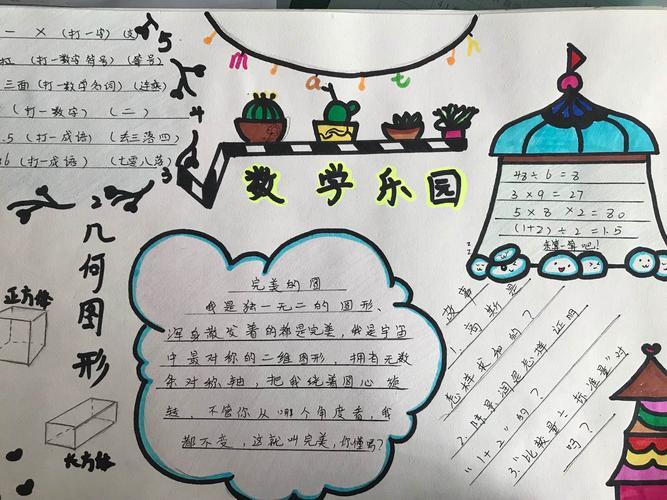 math
一 × (打一字) (支
(打一数字符号) (等号)
三面(打一数学名词)(连乘)
(打一数字) (二)
.5 (打一成语) (丢三落四)
(打一成语) (七零八落)
5
4
3
2
数学乐园
48÷6=8
3×9=27
5×8×2=80
(1+2)÷2=1.5
来算一算吧!
几何图形
正方体
长方体
完美的圆
我是独一无二的圆形、
浑身散发着的都是完美,我是宇宙
中最对称的二维图形,拥有无数
条对称轴,把我绕着圆心旋
转,不管你从哪个角度看,我
都不变,这就叫完美,你懂吗?
故事
1.高斯是
怎样求和的?
2.陈景润是怎样证明
"1+2"的?
3."比较量÷标准量"对
吗?